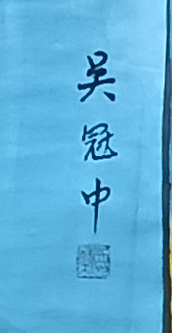 吴冠中